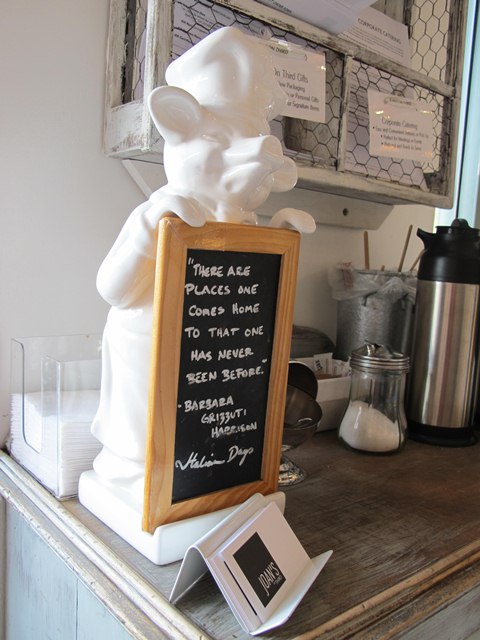 "THERE ARE
PLACES ONE
COMES HOME
TO THAT ONE
HAS NEVER
BEEN BEFORE."
"BARBARA
GRIZZUTI
HARRISON
Italian Days
JOAN'S
On Third Gifts
Corporate Catering
CORPORATE CATERING